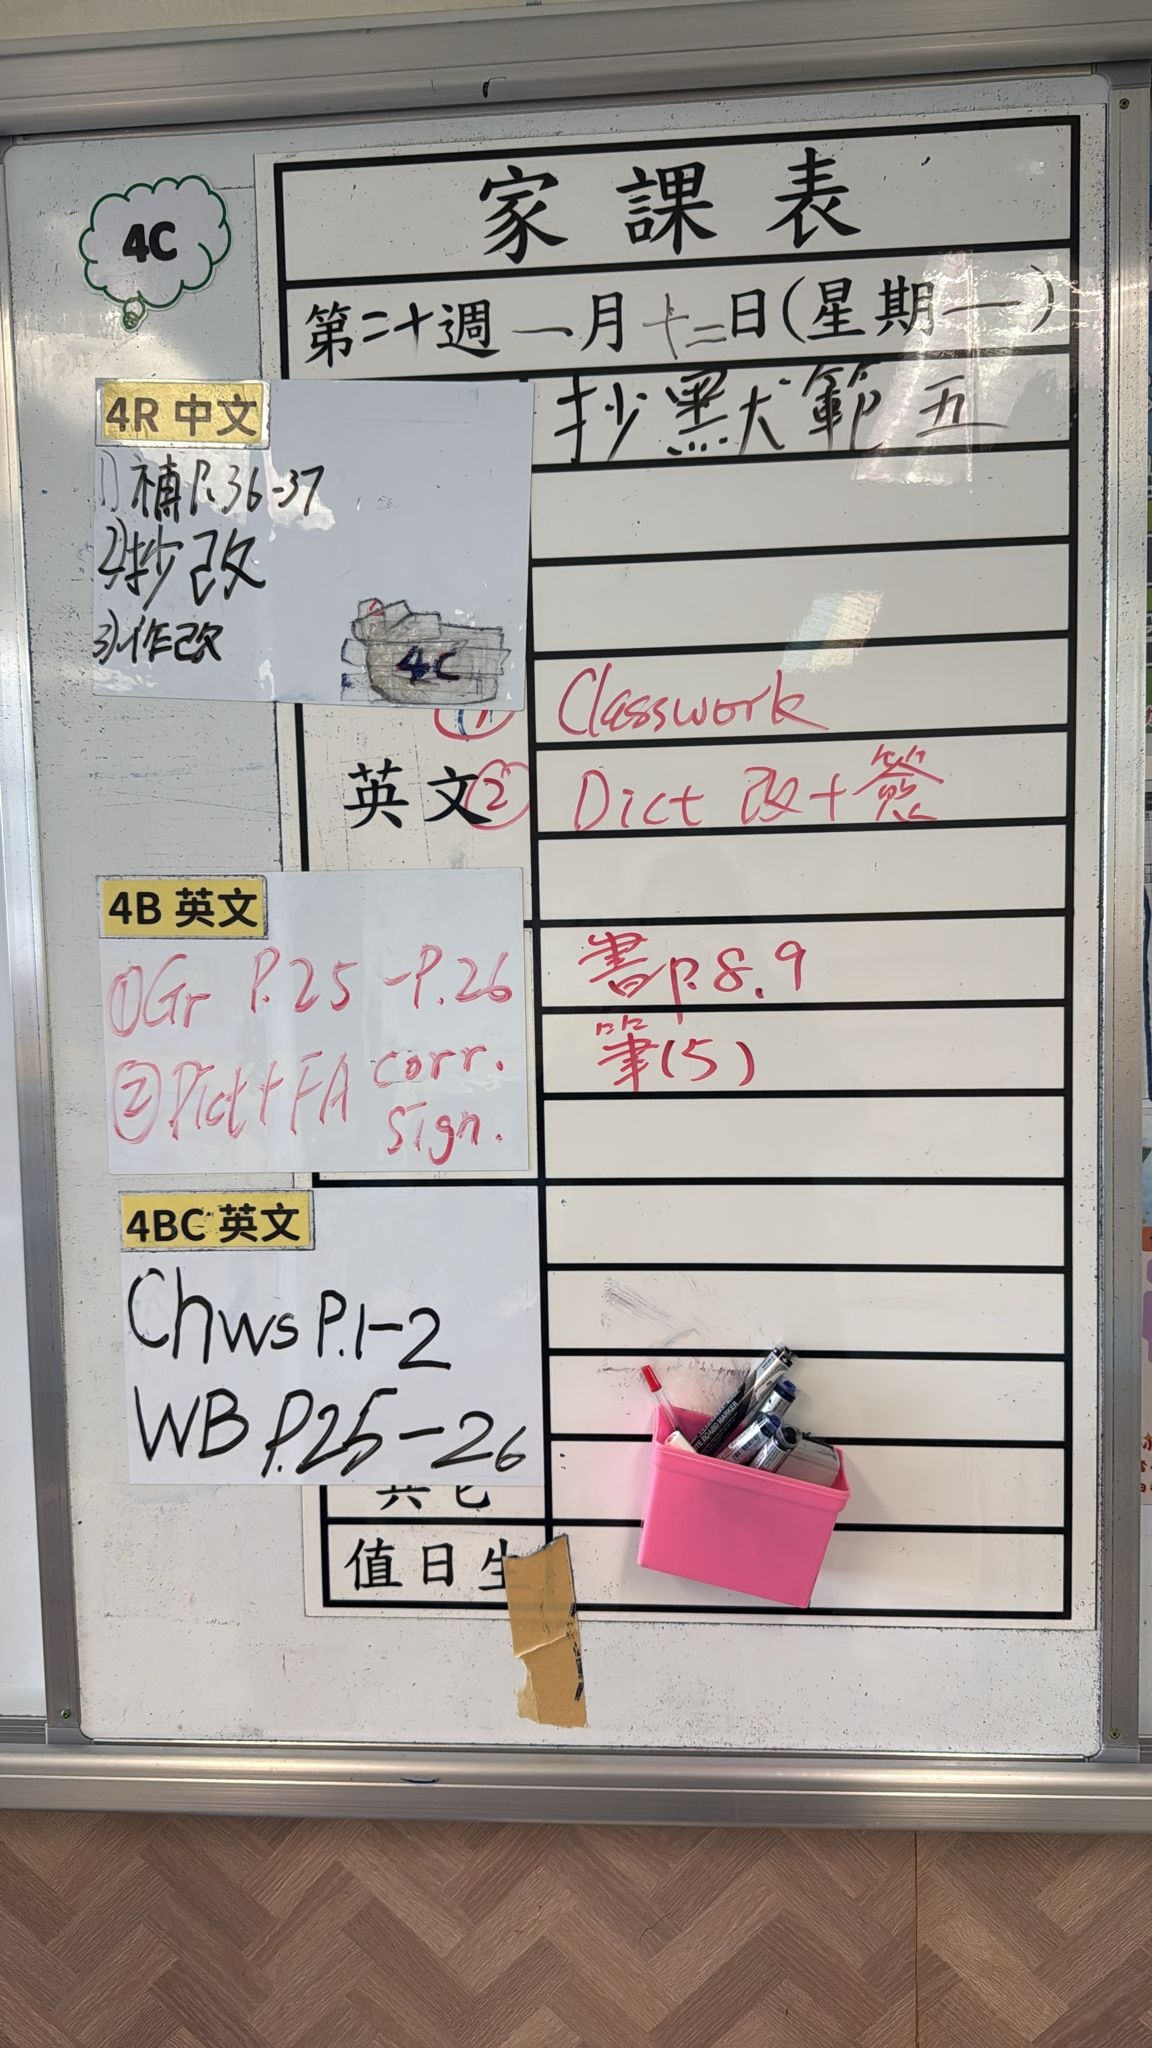 4C
家課表
第二十週一月十二日(星期一)
4R 中文
1) 補P.36-37
2)抄改
3)作改
4C
抄默範五
① Classwork
英文② Dict 改+簽
4B 英文
①Gr P.25-P.26
②Dict+FA corr.
sign.
書P.8.9
筆(5)
4BC 英文
Chws P.1-2
WB P.25-26
其它
值日生
WHITE BOARD MARKER